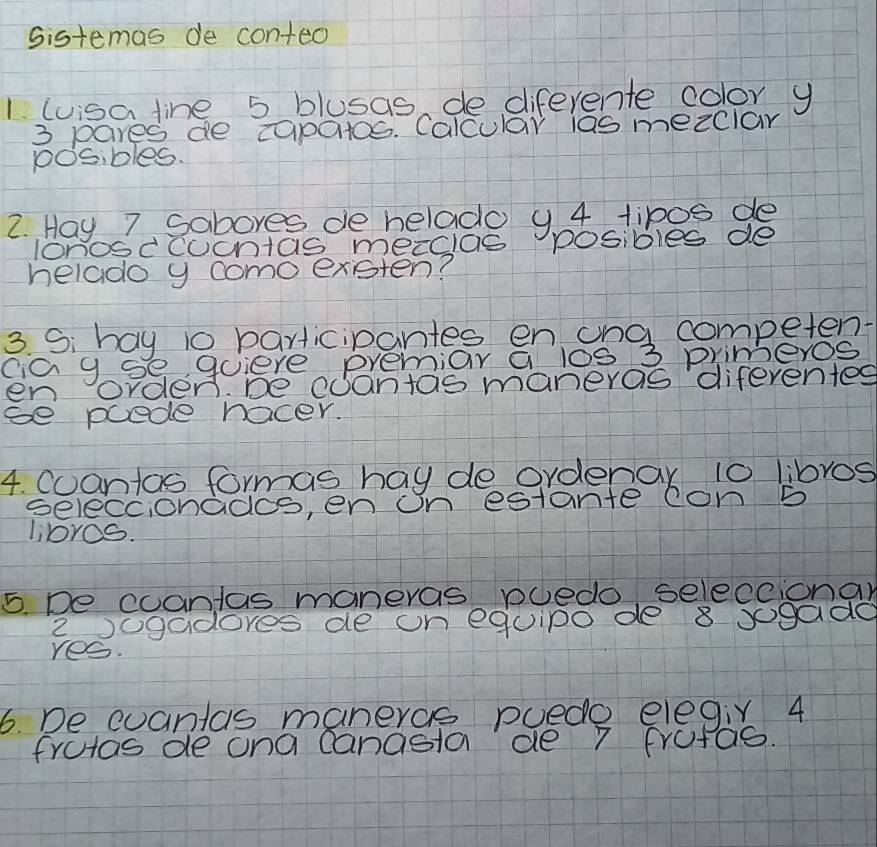 Sistemas de conteo
1. Luisa tine 5 blusas de diferente color y
3 pares de zapatos. Calcular las mezclar
posibles.
2. Hay 7 sabores de helado y 4 tipos de
conos ccuantas mezclas posibles de
helado y como existen?
3. Si hay 10 participantes en una competen-
cia y se quiere premiar a los 3 primeros
en orden. De cuantas maneras diferentes
se puede hacer.
4. Cuantas formas hay de ordenar 10 libros
seleccionados, en un estante con 5
libros.
5. De cuantas maneras puedo seleccionar
2 jugadores de un equipo de 8 jugado
res.
6. De cuantas maneras puedo elegir 4
frutas de una canasta de 7 frutas.